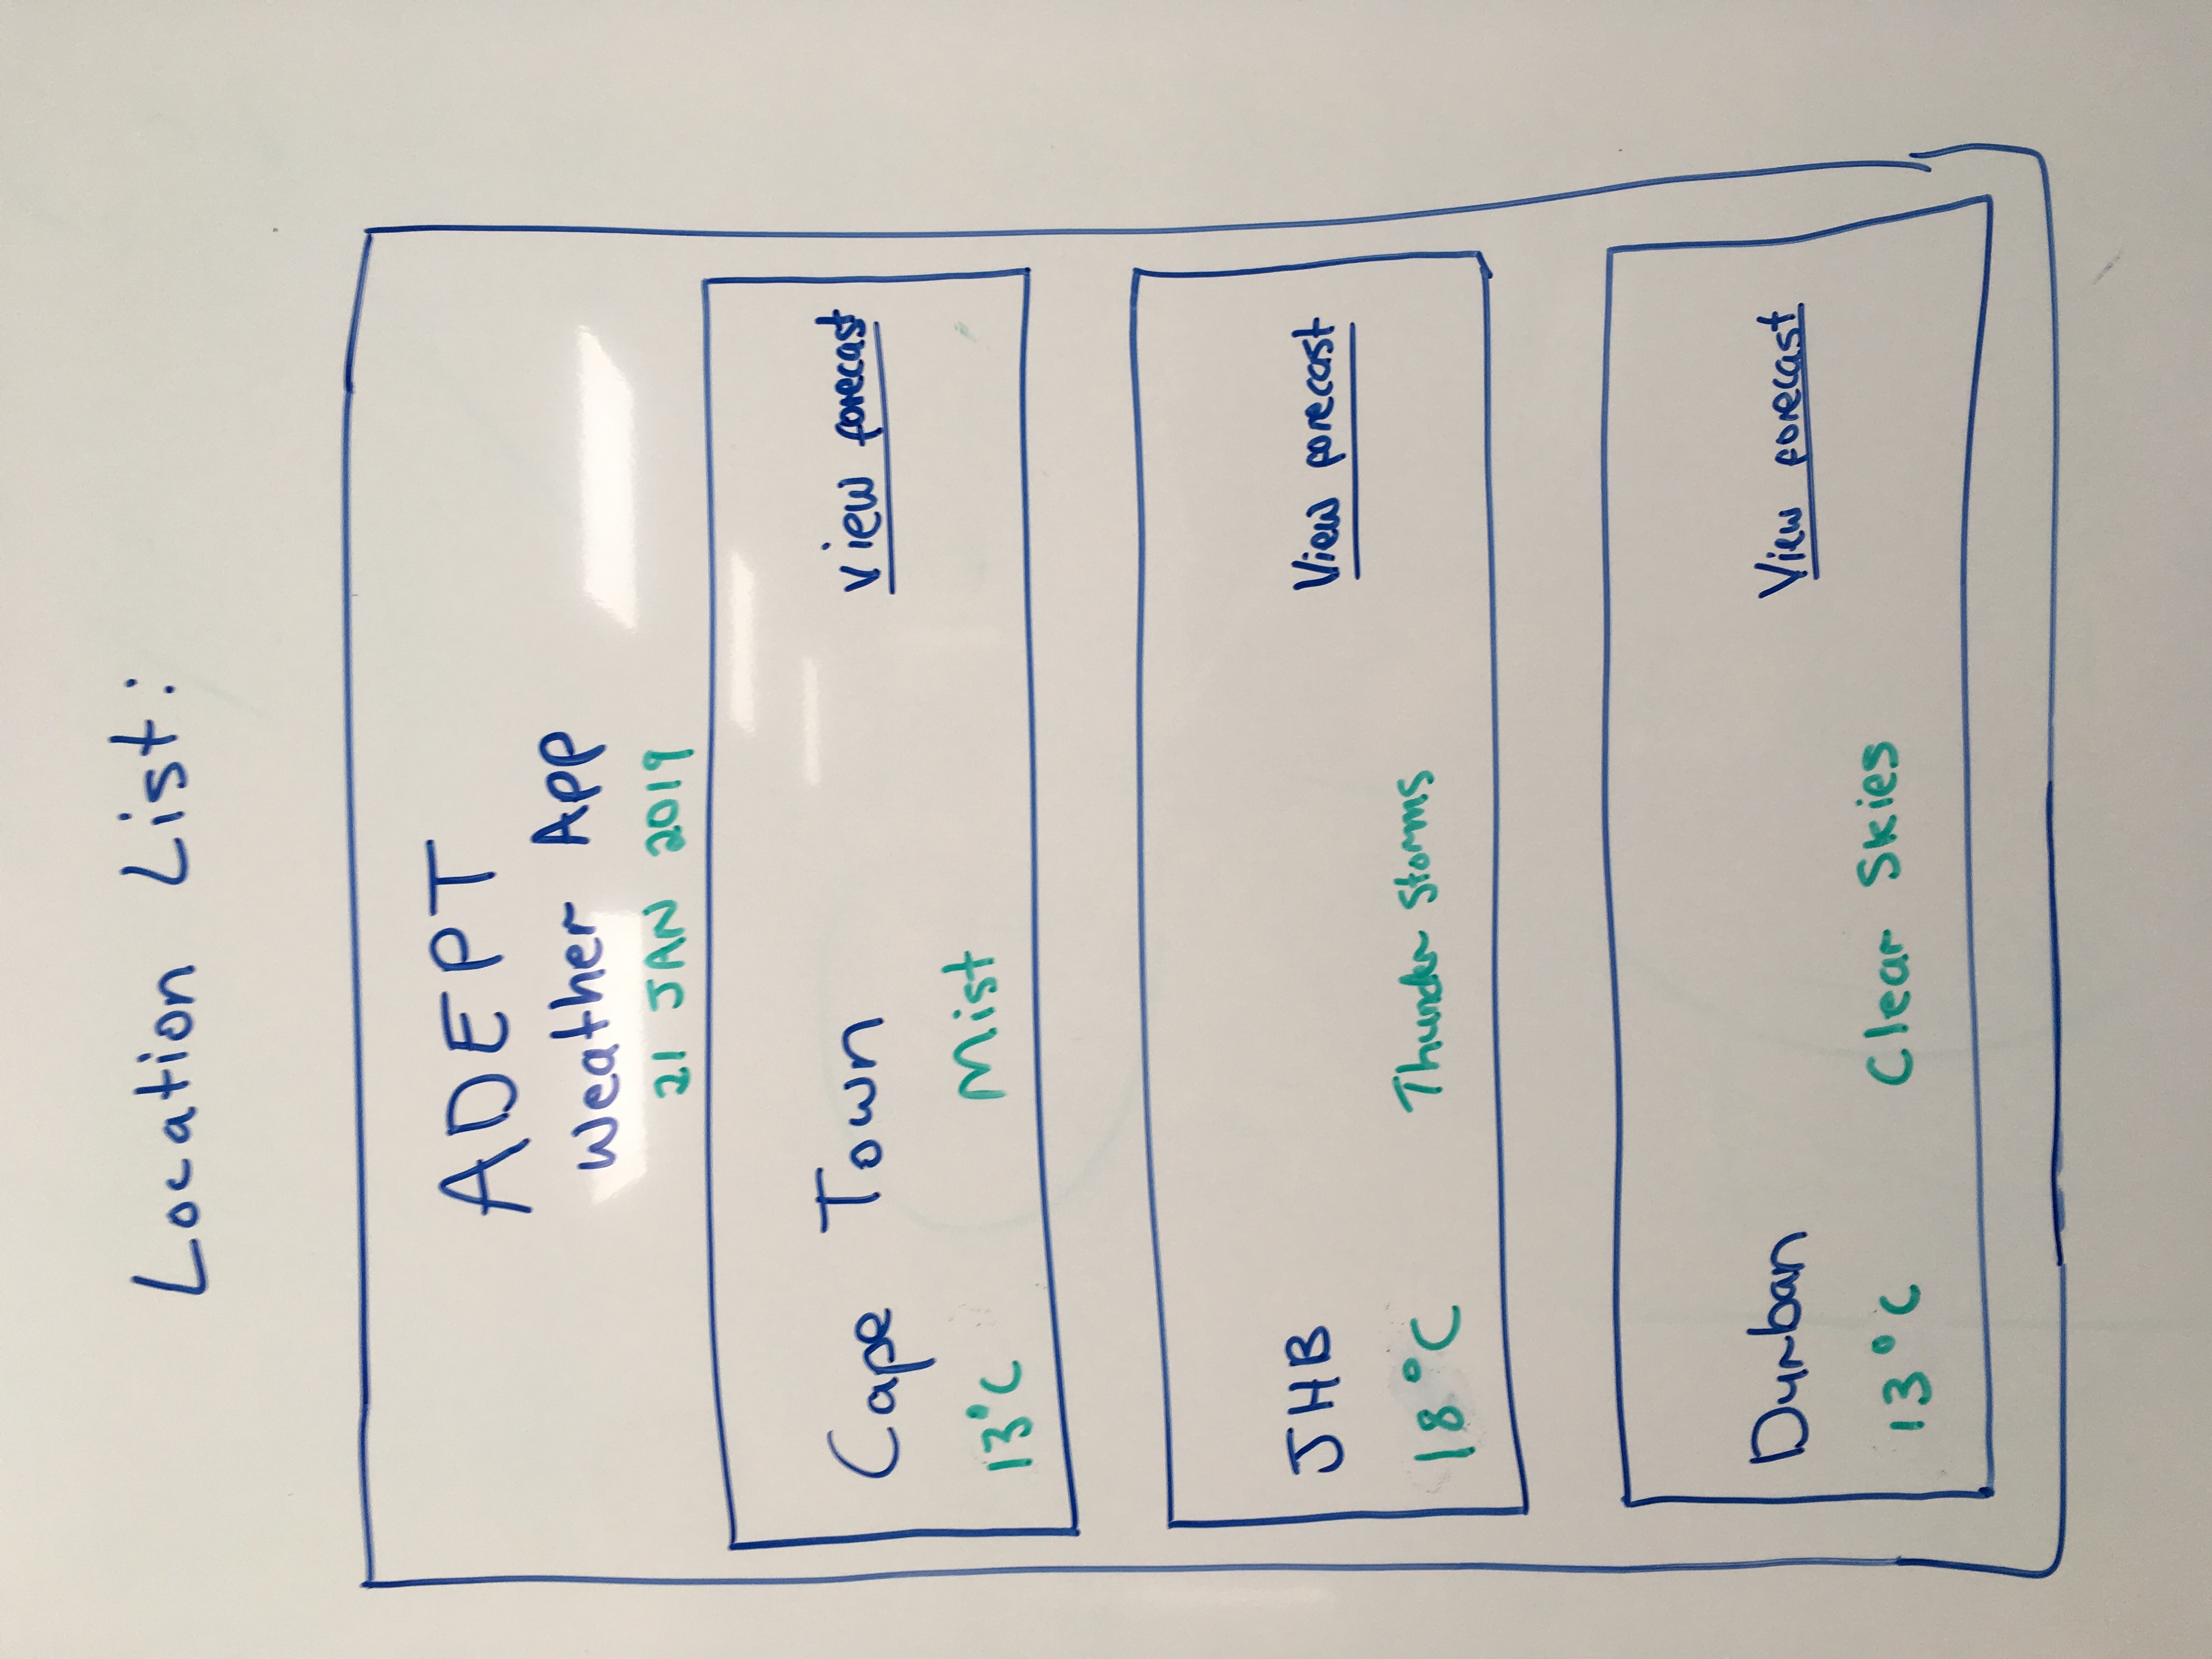 Location List:
ADEPT
Weather App
21 JAN 2019
Cape Town View forecast
13°C Mist
JHB View forecast
18°C Thunder Storms
Durban View forecast
13°C Clear Skies